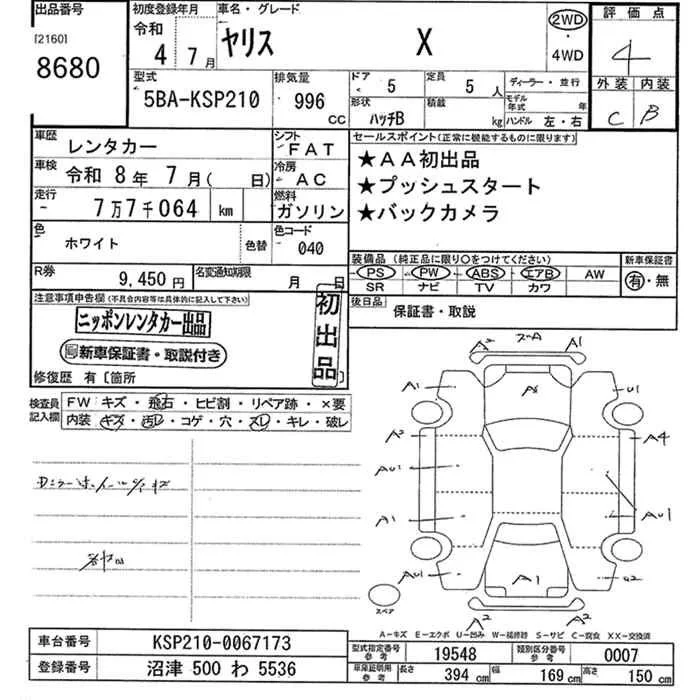 出品番号
[2160]
8680
初度登録年月
令和
4 7月
車名・グレード
ヤリス X
2WD
・
4WD
評価点
4
外装 内装
C B
型式
5BA-KSP210
排気量
996
CC
ドア
5
定員
5人
形状
ハッチB
積載
kg
ディーラー・並行
モデル年式 年
ハンドル 左・右
車歴
レンタカー
シフト
FAT
車検
令和 8年 7月( 日)
冷房
AC
走行
7万7千064 km
燃料
ガソリン
色
ホワイト
色替
色コード
040
R券
9,450円
名変通知期限
月 日
セールスポイント(正常に機能するものに限ります)
★AA初出品
★プッシュスタート
★バックカメラ
装備品 (純正品に限り○をつけてください)
PS PW ABS エアB AW
SR ナビ TV カワ
新車保証書
有・無
後日品
保証書・取説
注意事項申告欄(不具合内容等は具体的に記入して下さい)
ニッポンレンタカー出品
新車保証書・取説付き
初出品
修復歴 有 [箇所 ]
検査員記入欄
FW キズ・飛石・ヒビ割・リペア跡・×要
内装 キズ・汚レ・コゲ・穴・スレ・キレ・破レ
A2 A1
A1 A8 U1
A2 A4
AU1
A1 AU1
AU1 A1 U2
スペア
A2 A2
A-キズ E-エクボ U-凹み W-補修跡 S-サビ C-腐食 XX-交換済
車台番号
KSP210-0067173
登録番号
沼津 500 わ 5536
型式指定番号
参考
19548
類別区分番号
参考
0007
車庫証明用
参考
長さ 394 cm
幅 169 cm
高さ 150 cm